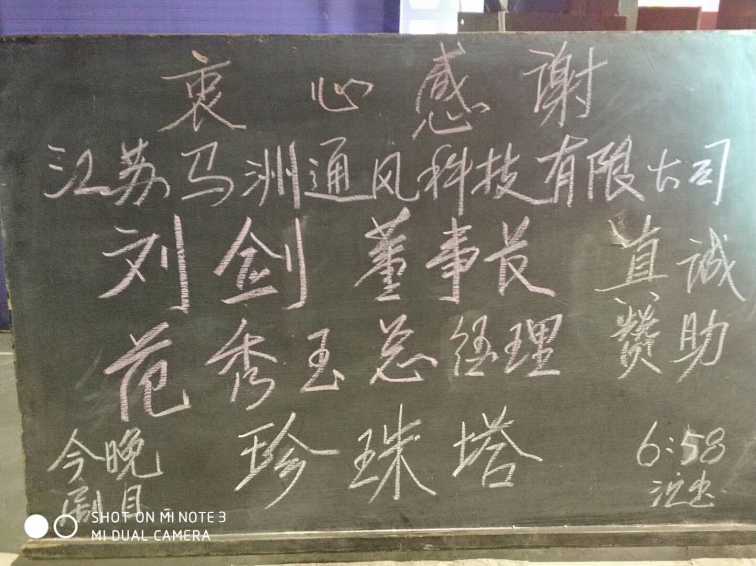 衷心感谢
江苏马洲通风科技有限公司
刘剑董事长 真诚
范秀玉总经理 赞助
今晚 珍珠塔 6:58
剧目
SHOT ON MI NOTE 3
MI DUAL CAMERA